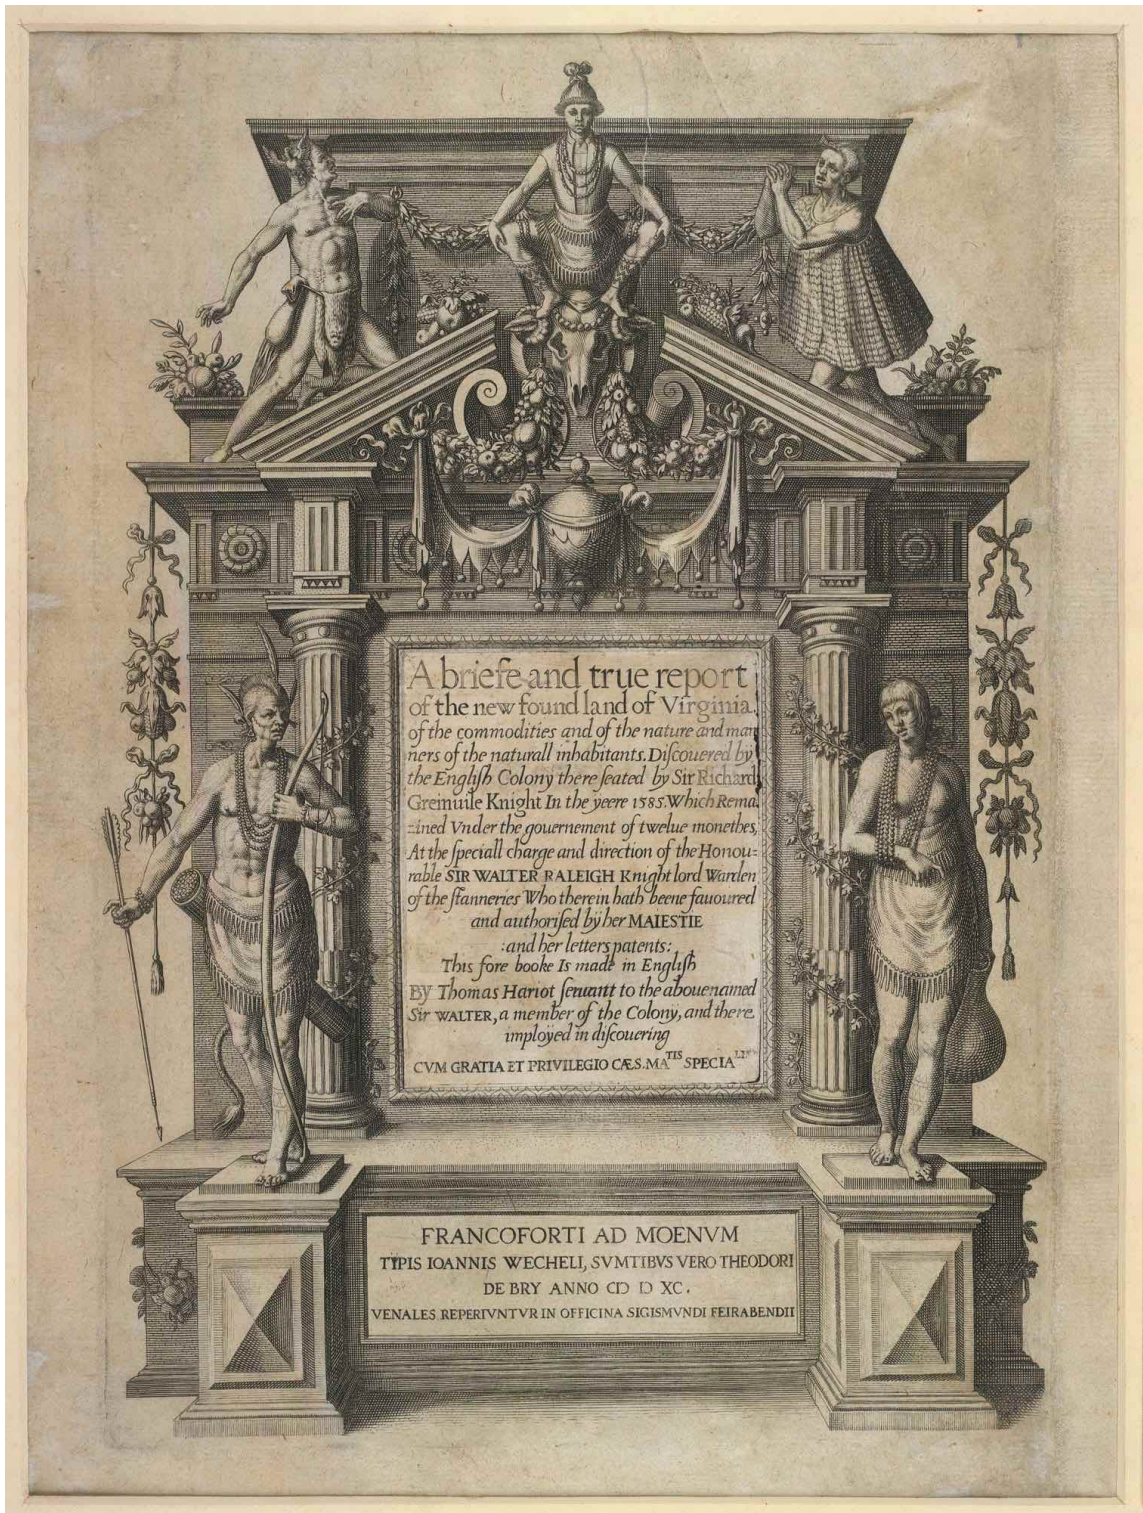 A briefe and true report
of the new found land of Virginia.
of the commodities and of the nature and man
ners of the naturall inhabitants. Diſcouered by
the Engliſh Colony there ſeated by Sir Richard
Greinuile Knight In the yeere 1585. Which Rema
ined Vnder the gouernement of twelue monethes,
At the ſpeciall charge and direction of the Honou-
rable SIR WALTER RALEIGH Knight lord Warden
of the ſtanneries Who therein hath beene fauoured
and authoriſed by her MAIESTIE
:and her letters patents:
This fore booke Is made in Engliſh
By Thomas Hariot ſeruant to the abouenamed
Sir WALTER, a member of the Colony, and there
imployed in diſcouering
CVM GRATIA ET PRIVILEGIO CÆS. MATIS SPECIALI
FRANCOFORTI AD MOENVM
TYPIS IOANNIS WECHELI, SVMTIBVS VERO THEODORI
DE BRY ANNO CIↃ IↃ XC.
VENALES REPERIVNTVR IN OFFICINA SIGISMVNDI FEIRABENDII